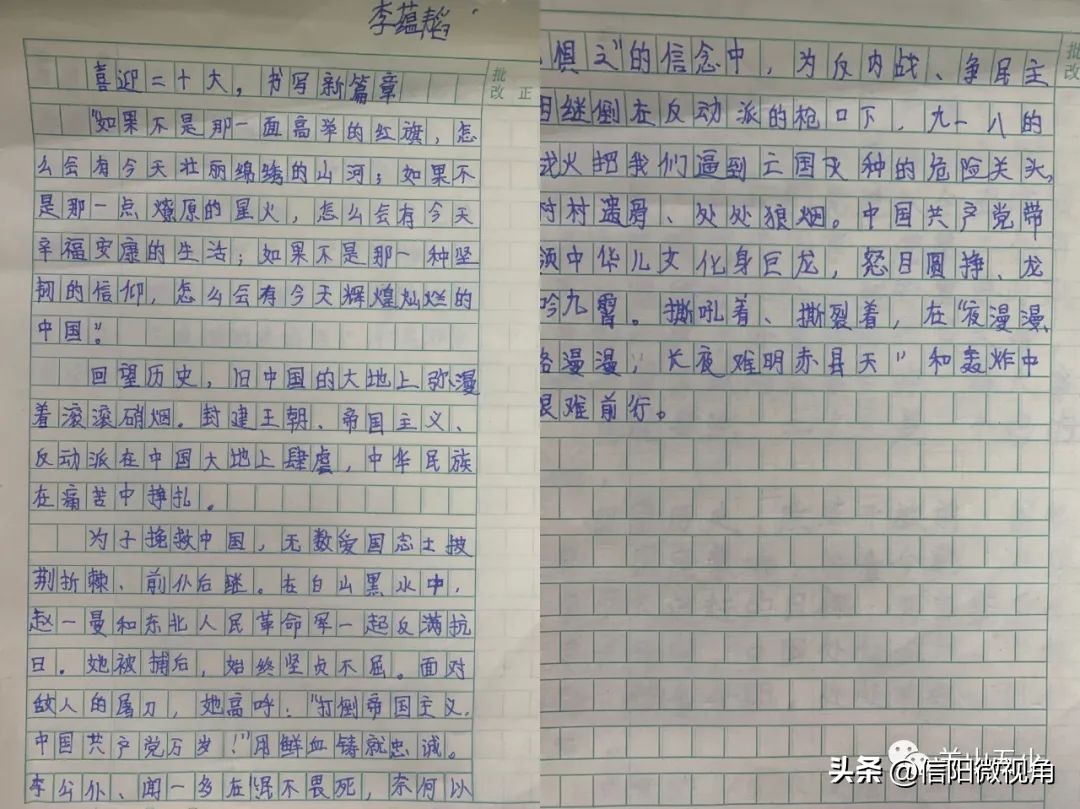 李蕴韬
喜迎二十大，书写新篇章
批改 正
"如果不是那一面高举的红旗，怎
么会有今天壮丽绵绣的山河；如果不
是那一点燎原的星火，怎么会有今天
辛福安康的生活；如果不是那一种坚
韧的信仰，怎么会有今天辉煌灿烂的
中国。"
回望历史，旧中国的大地上弥漫
着滚滚硝烟。封建王朝、帝国主义、
反动派在中国大地上肆虐，中华民族
在痛苦中挣扎。
为了挽救中国，无数爱国志士披
荆折棘、前仆后继。在白山黑水中，
赵一曼和东北人民革命军一起反满抗
日。她被捕后，始终坚贞不屈。面对
敌人的屠刀，她高呼："打倒帝国主义，
中国共产党万岁！"用鲜血铸就忠诚。
李公仆、闻一多在"民不畏死，奈何以
惧之"的信念中，为反内战、争民主
批改
继倒在反动派的枪口下，九一八的
战火把我们逼到亡国灭种的危险关头，
村村遗骨、处处狼烟。中国共产党带
领中华儿女化身巨龙，怒目圆挣、龙
吟九霄。撕吼着、撕裂着，在"夜漫漫、
路漫漫，长夜难明赤县天"和轰炸中
艰难前行。
羊山五小
头条 @信阳微视角